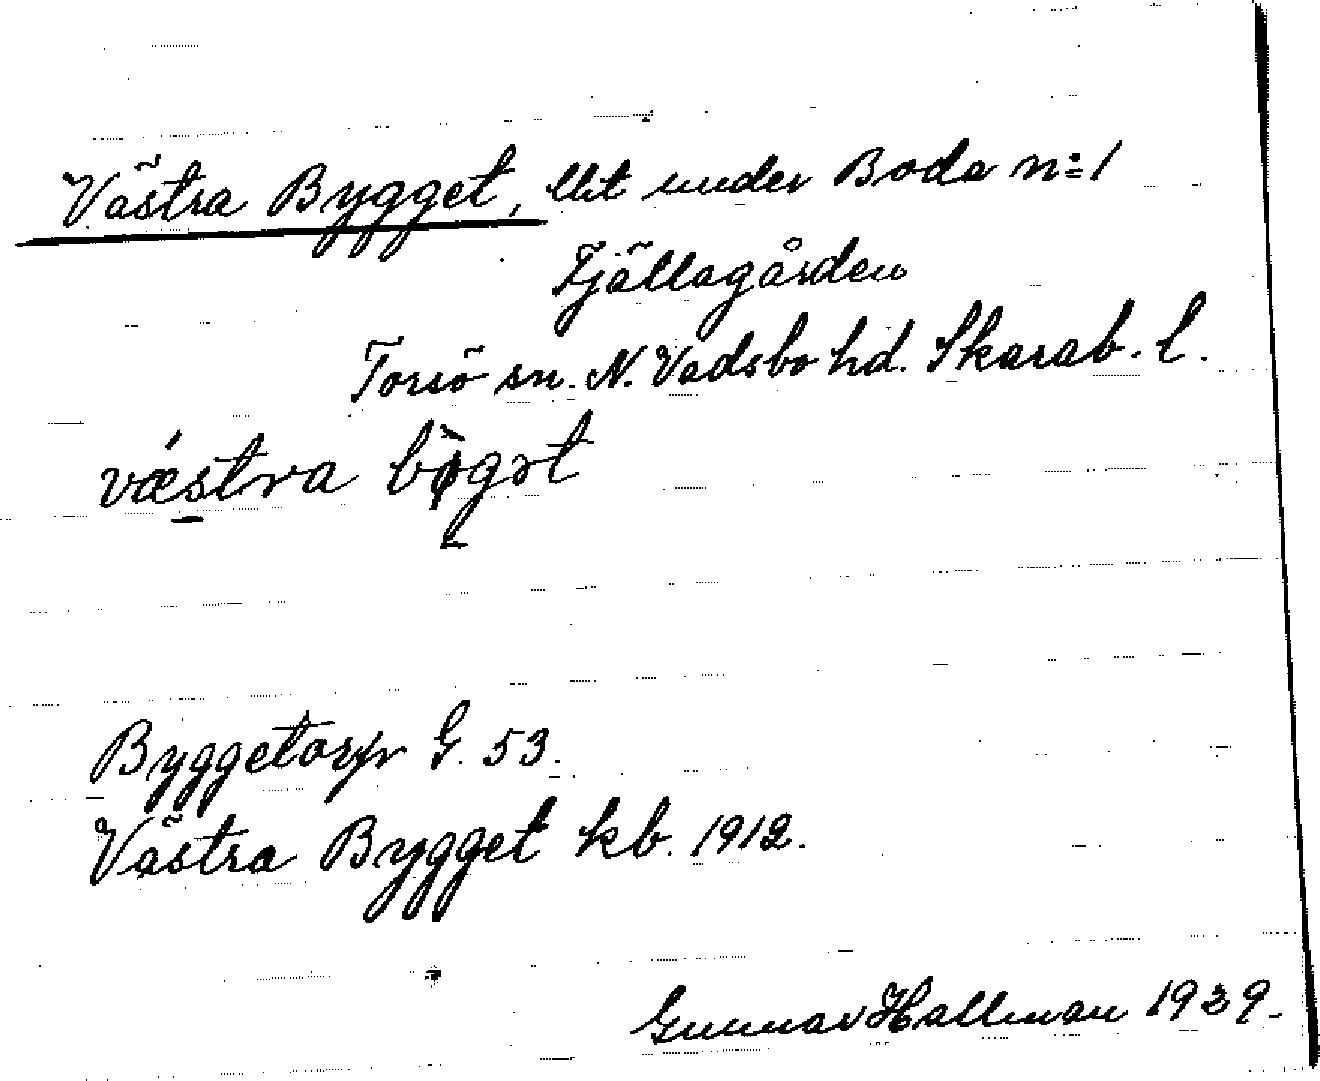 Västra Bygget, llit under Boda n:1
Fjällagården
Torsö sn. N. Vadsbo hd. Skarab. l.
vǽstra bø̀gət
Byggetorp G. 53.
Västra Bygget kb. 1912.
Gunnar Hallman 1939.